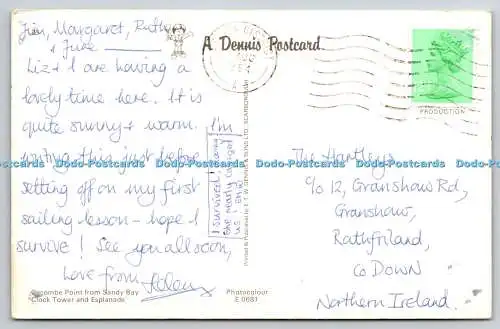 Jim, Margaret, Ruth
+ June
Liz + I are having a
lovely time here. It is
quite sunny + warm. I'm
writing this just before
setting off on my first
sailing lesson - hope I
survive! See you all soon,
Love from
Helen
I survived!
A Dennis Postcard
PRODUCTION
The Huntleys
c/o 12, Granshaw Rd,
Granshaw,
Rathfriland,
Co DOWN
Northern Ireland.
Dodo-Postcards Dodo-Postcards Dodo-Postcards Dodo-Postcards Dodo-Postcards Dodo-Postcards
Salcombe Point from Sandy Bay
Clock Tower and Esplanade
Photocolour
E 0681